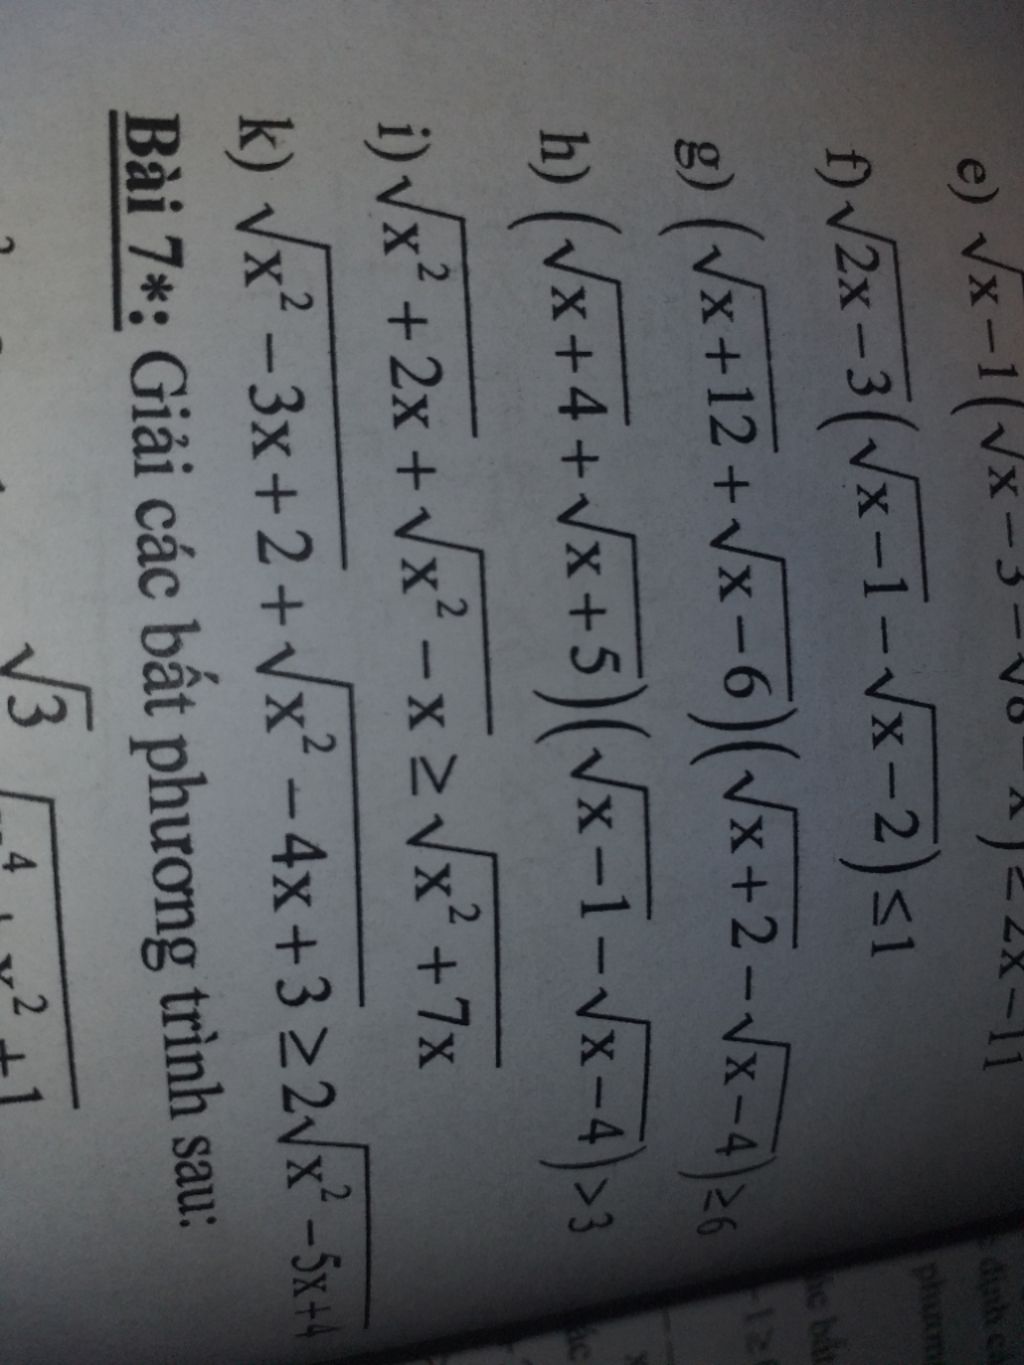 e) √(x−1)(√(x−3)−√(8−x)) ≥ 2x−11
f) √(2x−3)(√(x−1)−√(x−2)) ≤ 1
g) (√(x+12)+√(x−6))(√(x+2)−√(x−4)) ≥ 6
h) (√(x+4)+√(x+5))(√(x−1)−√(x−4)) > 3
i) √(x²+2x)+√(x²−x) ≥ √(x²+7x)
k) √(x²−3x+2)+√(x²−4x+3) ≥ 2√(x²−5x+4)
Bài 7*: Giải các bất phương trình sau: